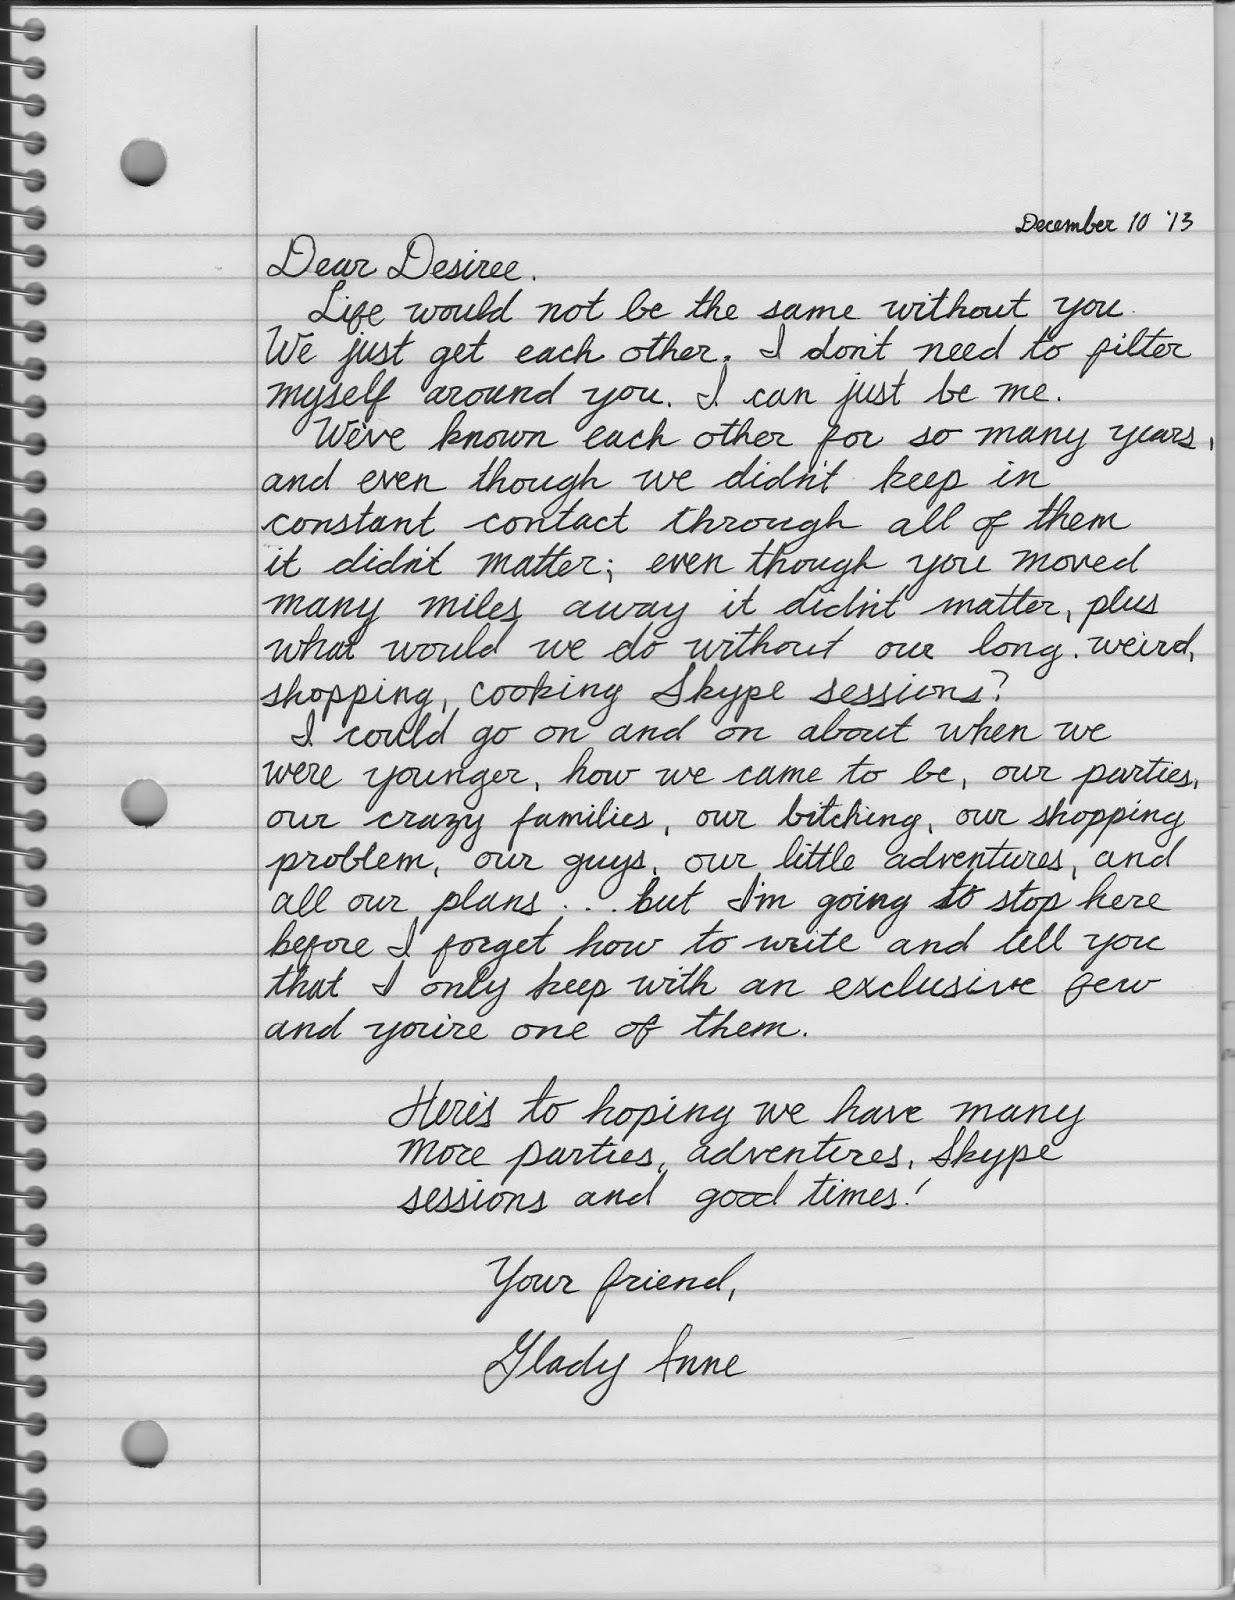 December 10 '13
Dear Desiree,
Life would not be the same without you.
We just get each other. I don't need to filter
myself around you. I can just be me.
We've known each other for so many years,
and even though we didn't keep in
constant contact through all of them
it didn't matter; even though you moved
many miles away it didn't matter, plus
what would we do without our long, weird,
shopping, cooking Skype sessions?
I could go on and on about when we
were younger, how we came to be, our parties,
our crazy families, our bitching, our shopping
problem, our guys, our little adventures, and
all our plans... but I'm going to stop here
before I forget how to write and tell you
that I only keep with an exclusive few
and you're one of them.
Here's to hoping we have many
more parties, adventures, Skype
sessions and good times!
Your friend,
Glady Anne